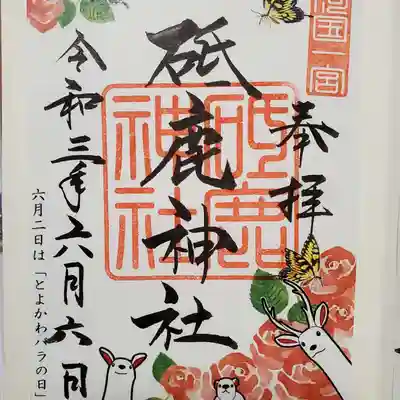 奉拝
国一宮
砥鹿神社
砥鹿
神社
令和三年六月六日
六月二日は「とよかわバラの日」